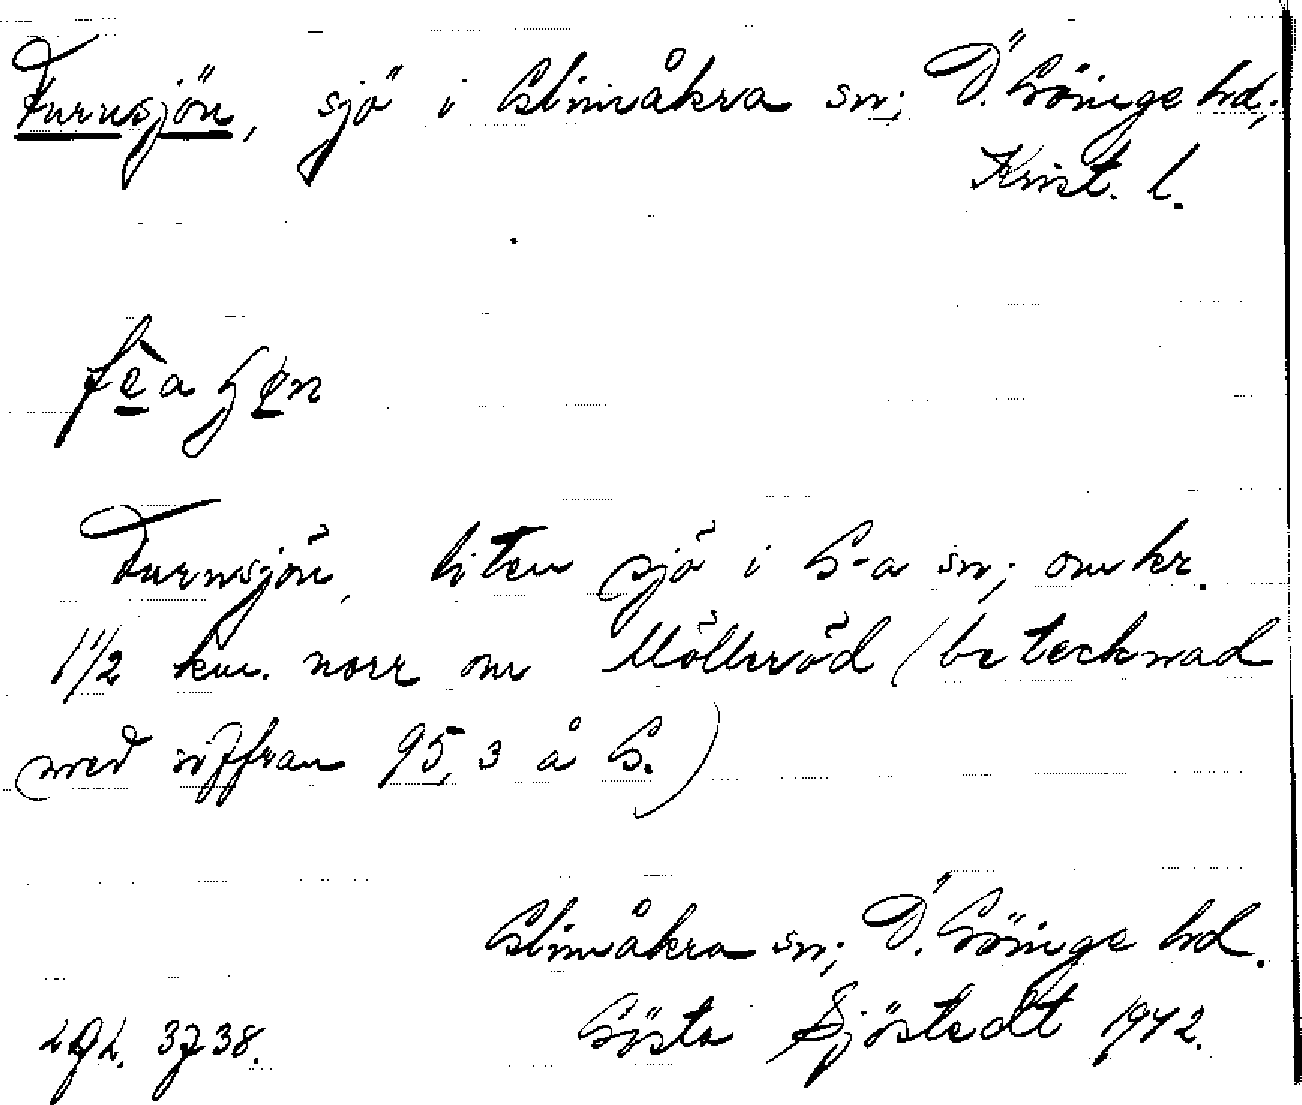 Furusjön, sjö i Glimåkra sn; Ö. Göinge hd;
Krist. l.
Furusjön, liten sjö i G-a sn; omkr.
1 1/2 km. norr om Mölleröd (betecknad
med siffran 95,3 å G.)
Glimåkra sn; Ö. Göinge hd.
3738. Gösta Sjöstedt 1942.